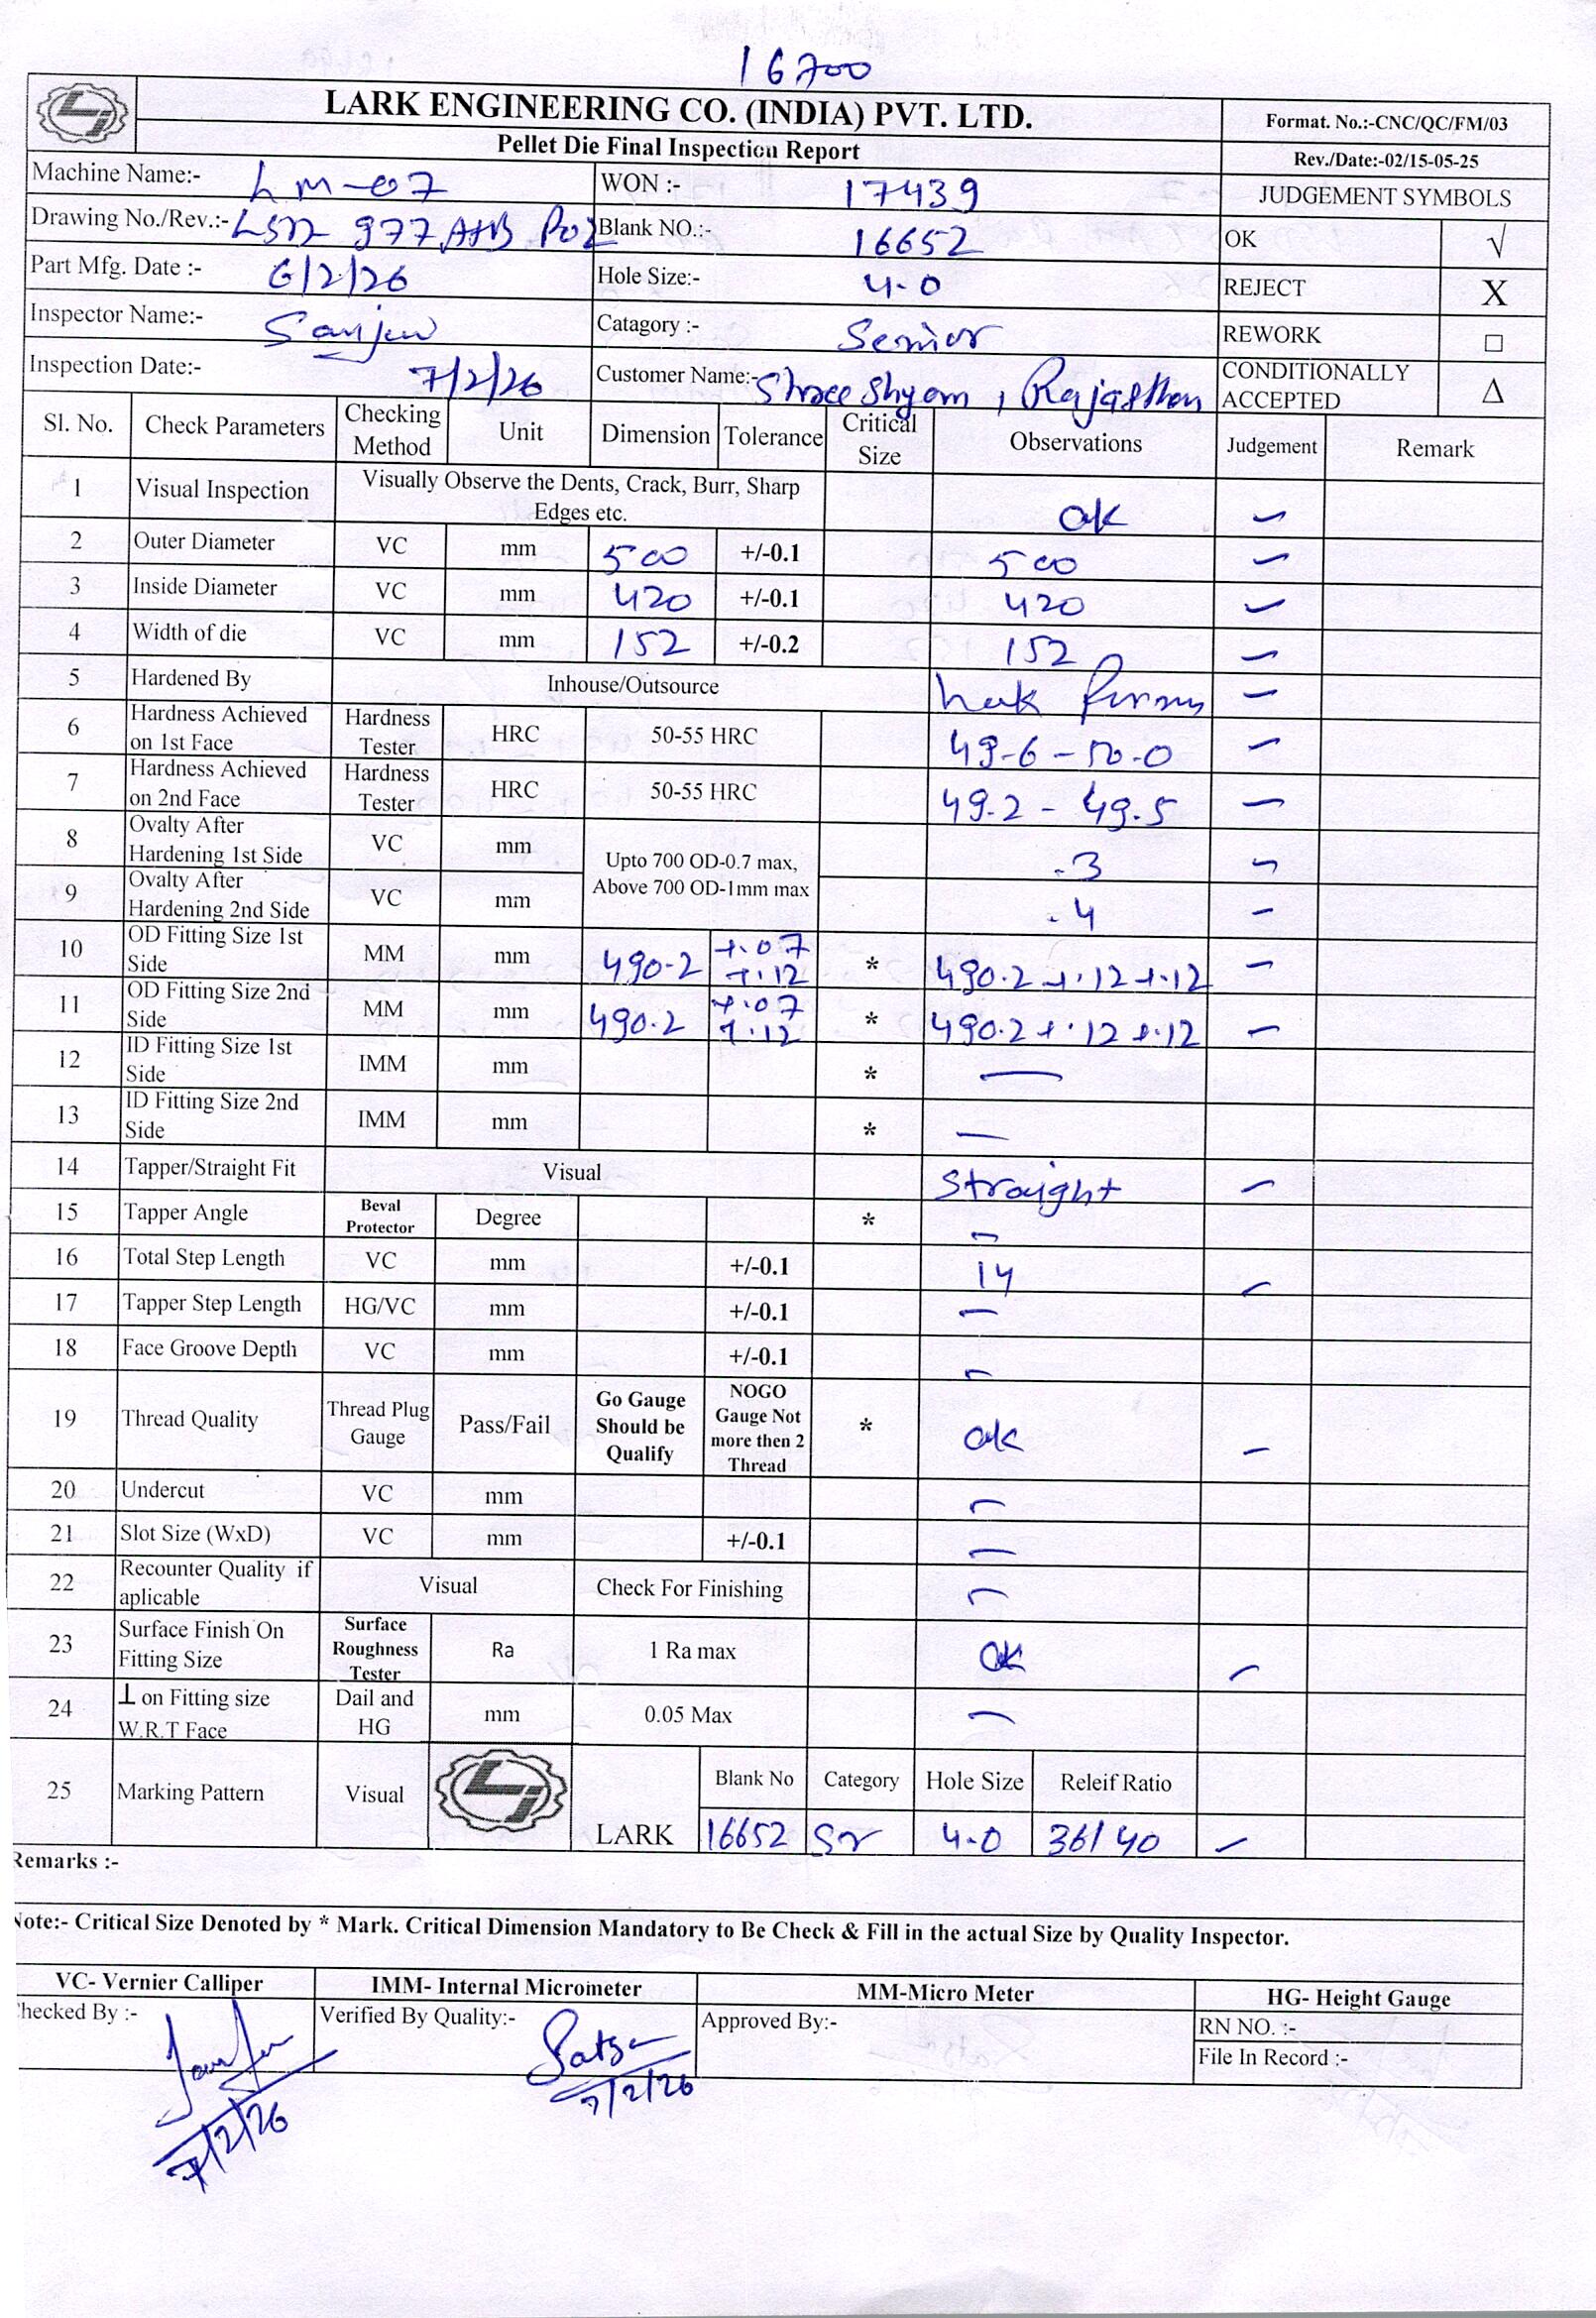 16700
LARK ENGINEERING CO. (INDIA) PVT. LTD.
Format. No.:-CNC/QC/FM/03
Pellet Die Final Inspection Report
Rev./Date:-02/15-05-25
Machine Name:- LM-07 WON :- 17439 JUDGEMENT SYMBOLS
Drawing No./Rev.:- 977 Blank NO.:- 16652 OK √
Part Mfg. Date :- 6/2/26 Hole Size:- 4.0 REJECT X
Inspector Name:- Sanjeev Catagory :- Senior REWORK □
Inspection Date:- 7/2/26 Customer Name:- Shree Shyam, Rajasthan CONDITIONALLY ACCEPTED Δ
Sl. No. Check Parameters Checking Method Unit Dimension Tolerance Critical Size Observations Judgement Remark
1 Visual Inspection Visually Observe the Dents, Crack, Burr, Sharp Edges etc. ok
2 Outer Diameter VC mm 500 +/-0.1 500
3 Inside Diameter VC mm 420 +/-0.1 420
4 Width of die VC mm 152 +/-0.2 152
5 Hardened By Inhouse/Outsource
6 Hardness Achieved on 1st Face Hardness Tester HRC 50-55 HRC 49.6 - 50.0
7 Hardness Achieved on 2nd Face Hardness Tester HRC 50-55 HRC 49.2 - 49.5
8 Ovalty After Hardening 1st Side VC mm Upto 700 OD-0.7 max, Above 700 OD-1mm max .3
9 Ovalty After Hardening 2nd Side VC mm .4
10 OD Fitting Size 1st Side MM mm 490.2 +.07 +.12 * 490.2 +.12 +.12
11 OD Fitting Size 2nd Side MM mm 490.2 +.07 +.12 * 490.2 +.12 +.12
12 ID Fitting Size 1st Side IMM mm * —
13 ID Fitting Size 2nd Side IMM mm * —
14 Tapper/Straight Fit Visual Straight
15 Tapper Angle Beval Protector Degree * —
16 Total Step Length VC mm +/-0.1 14
17 Tapper Step Length HG/VC mm +/-0.1 —
18 Face Groove Depth VC mm +/-0.1 —
19 Thread Quality Thread Plug Gauge Pass/Fail Go Gauge Should be Qualify NOGO Gauge Not more then 2 Thread * ok
20 Undercut VC mm —
21 Slot Size (WxD) VC mm +/-0.1 —
22 Recounter Quality if aplicable Visual Check For Finishing —
23 Surface Finish On Fitting Size Surface Roughness Tester Ra 1 Ra max OK
24 ⊥ on Fitting size W.R.T Face Dail and HG mm 0.05 Max —
25 Marking Pattern Visual LARK Blank No Category Hole Size Releif Ratio
16652 Sr 4.0 36/40
Remarks :-
Note:- Critical Size Denoted by * Mark. Critical Dimension Mandatory to Be Check & Fill in the actual Size by Quality Inspector.
VC- Vernier Calliper IMM- Internal Micrometer MM-Micro Meter HG- Height Gauge
Checked By :- Verified By Quality:- Approved By:- RN NO. :-
File In Record :-
7/2/26
7/2/26